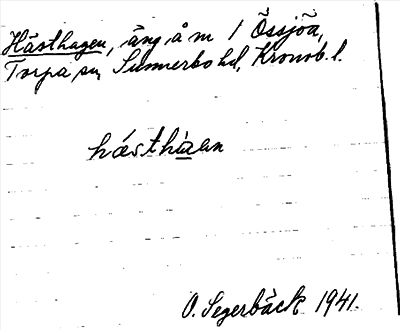 Hästhagen, äng å m 1 Össjöa,
Torpa sn, Sunnerbo hd, Kronob. l.
hästhaan
O. Segerbäck 1941.